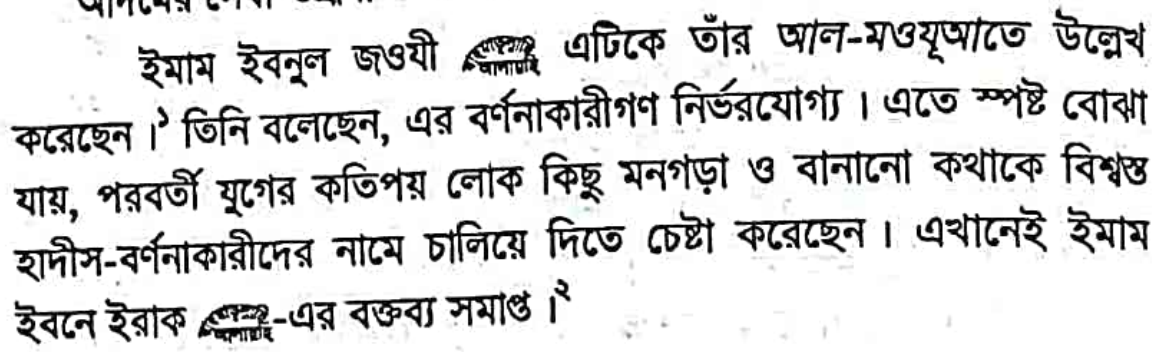 ইমাম ইবনুল জওযী এটিকে তাঁর আল-মওযূআতে উল্লেখ
করেছেন।১ তিনি বলেছেন, এর বর্ণনাকারীগণ নির্ভরযোগ্য। এতে স্পষ্ট বোঝা
যায়, পরবর্তী যুগের কতিপয় লোক কিছু মনগড়া ও বানানো কথাকে বিশ্বস্ত
হাদীস-বর্ণনাকারীদের নামে চালিয়ে দিতে চেষ্টা করেছেন। এখানেই ইমাম
ইবনে ইরাক -এর বক্তব্য সমাপ্ত।২